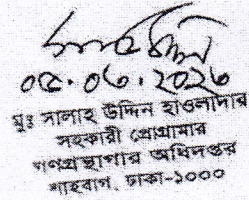 ০৫.০৬.২০২৩
মুঃ সালাহ উদ্দিন হাওলাদার
সহকারী প্রোগ্রামার
গণগ্রন্থাগার অধিদপ্তর
শাহবাগ, ঢাকা-১০০০